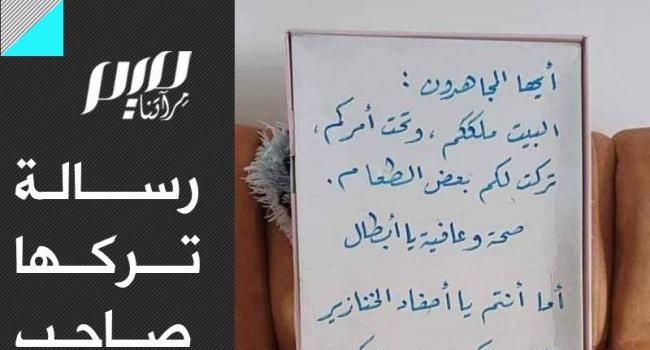 سير
مرآتنا
رسالة
تركها
صاحب
أيها المجاهدون :
البيت ملككم ، وتحت أمركم ،
تركت لكم بعض الطعام .
صحة وعافية يا أبطال
أما أنتم يا أحفاد الخنازير